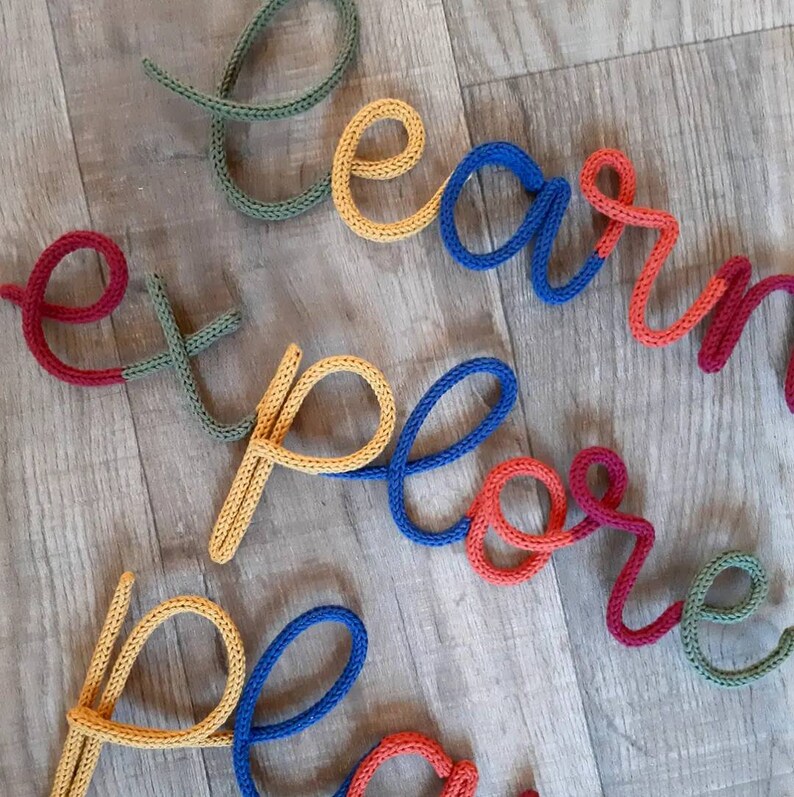 learn
explore
pla